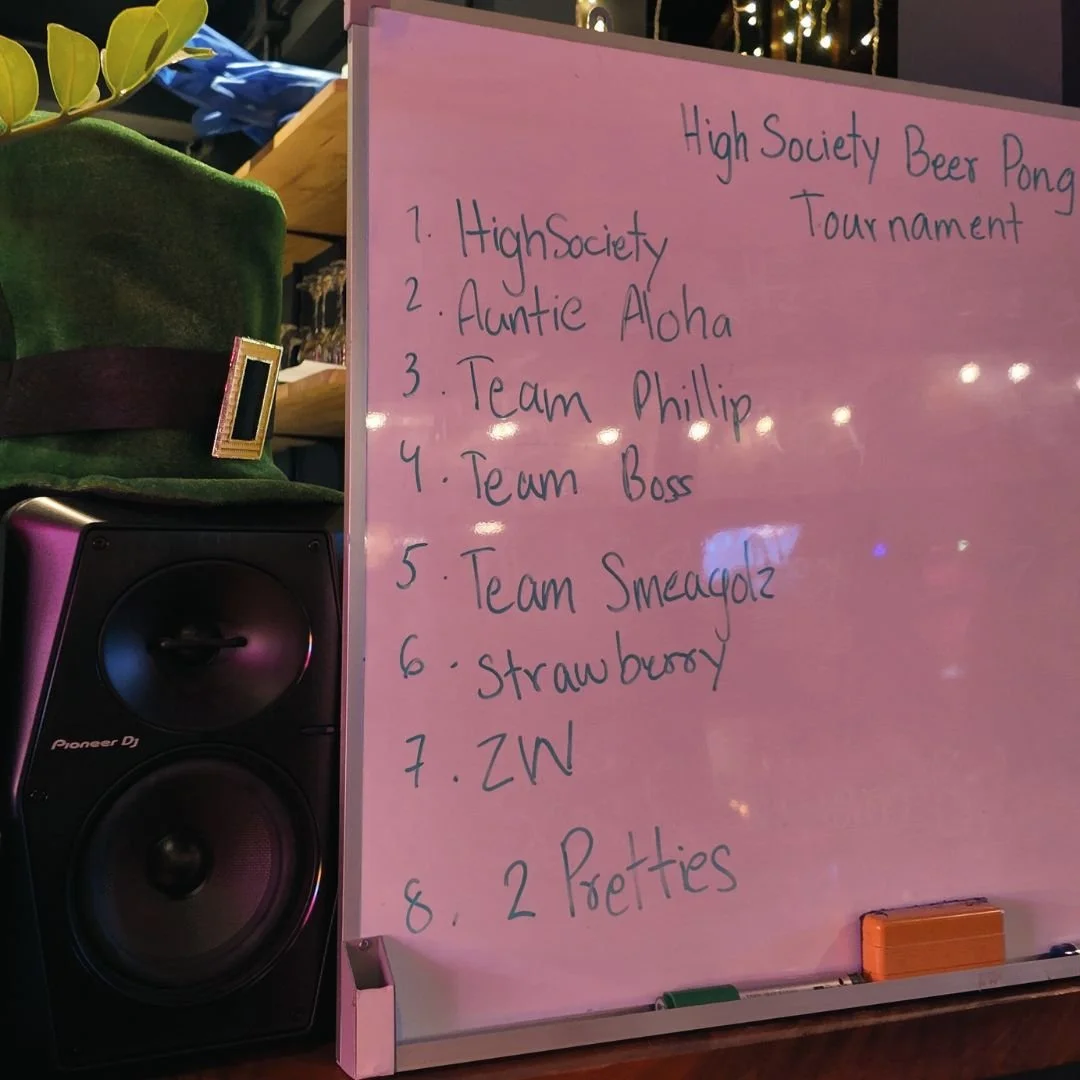 High Society Beer Pong
Tournament
1. HighSociety
2. Auntie Aloha
3. Team Phillip
4. Team Boss
5. Team Smeagolz
6. Strawberry
7. ZW
8. 2 Pretties
Pioneer Dj